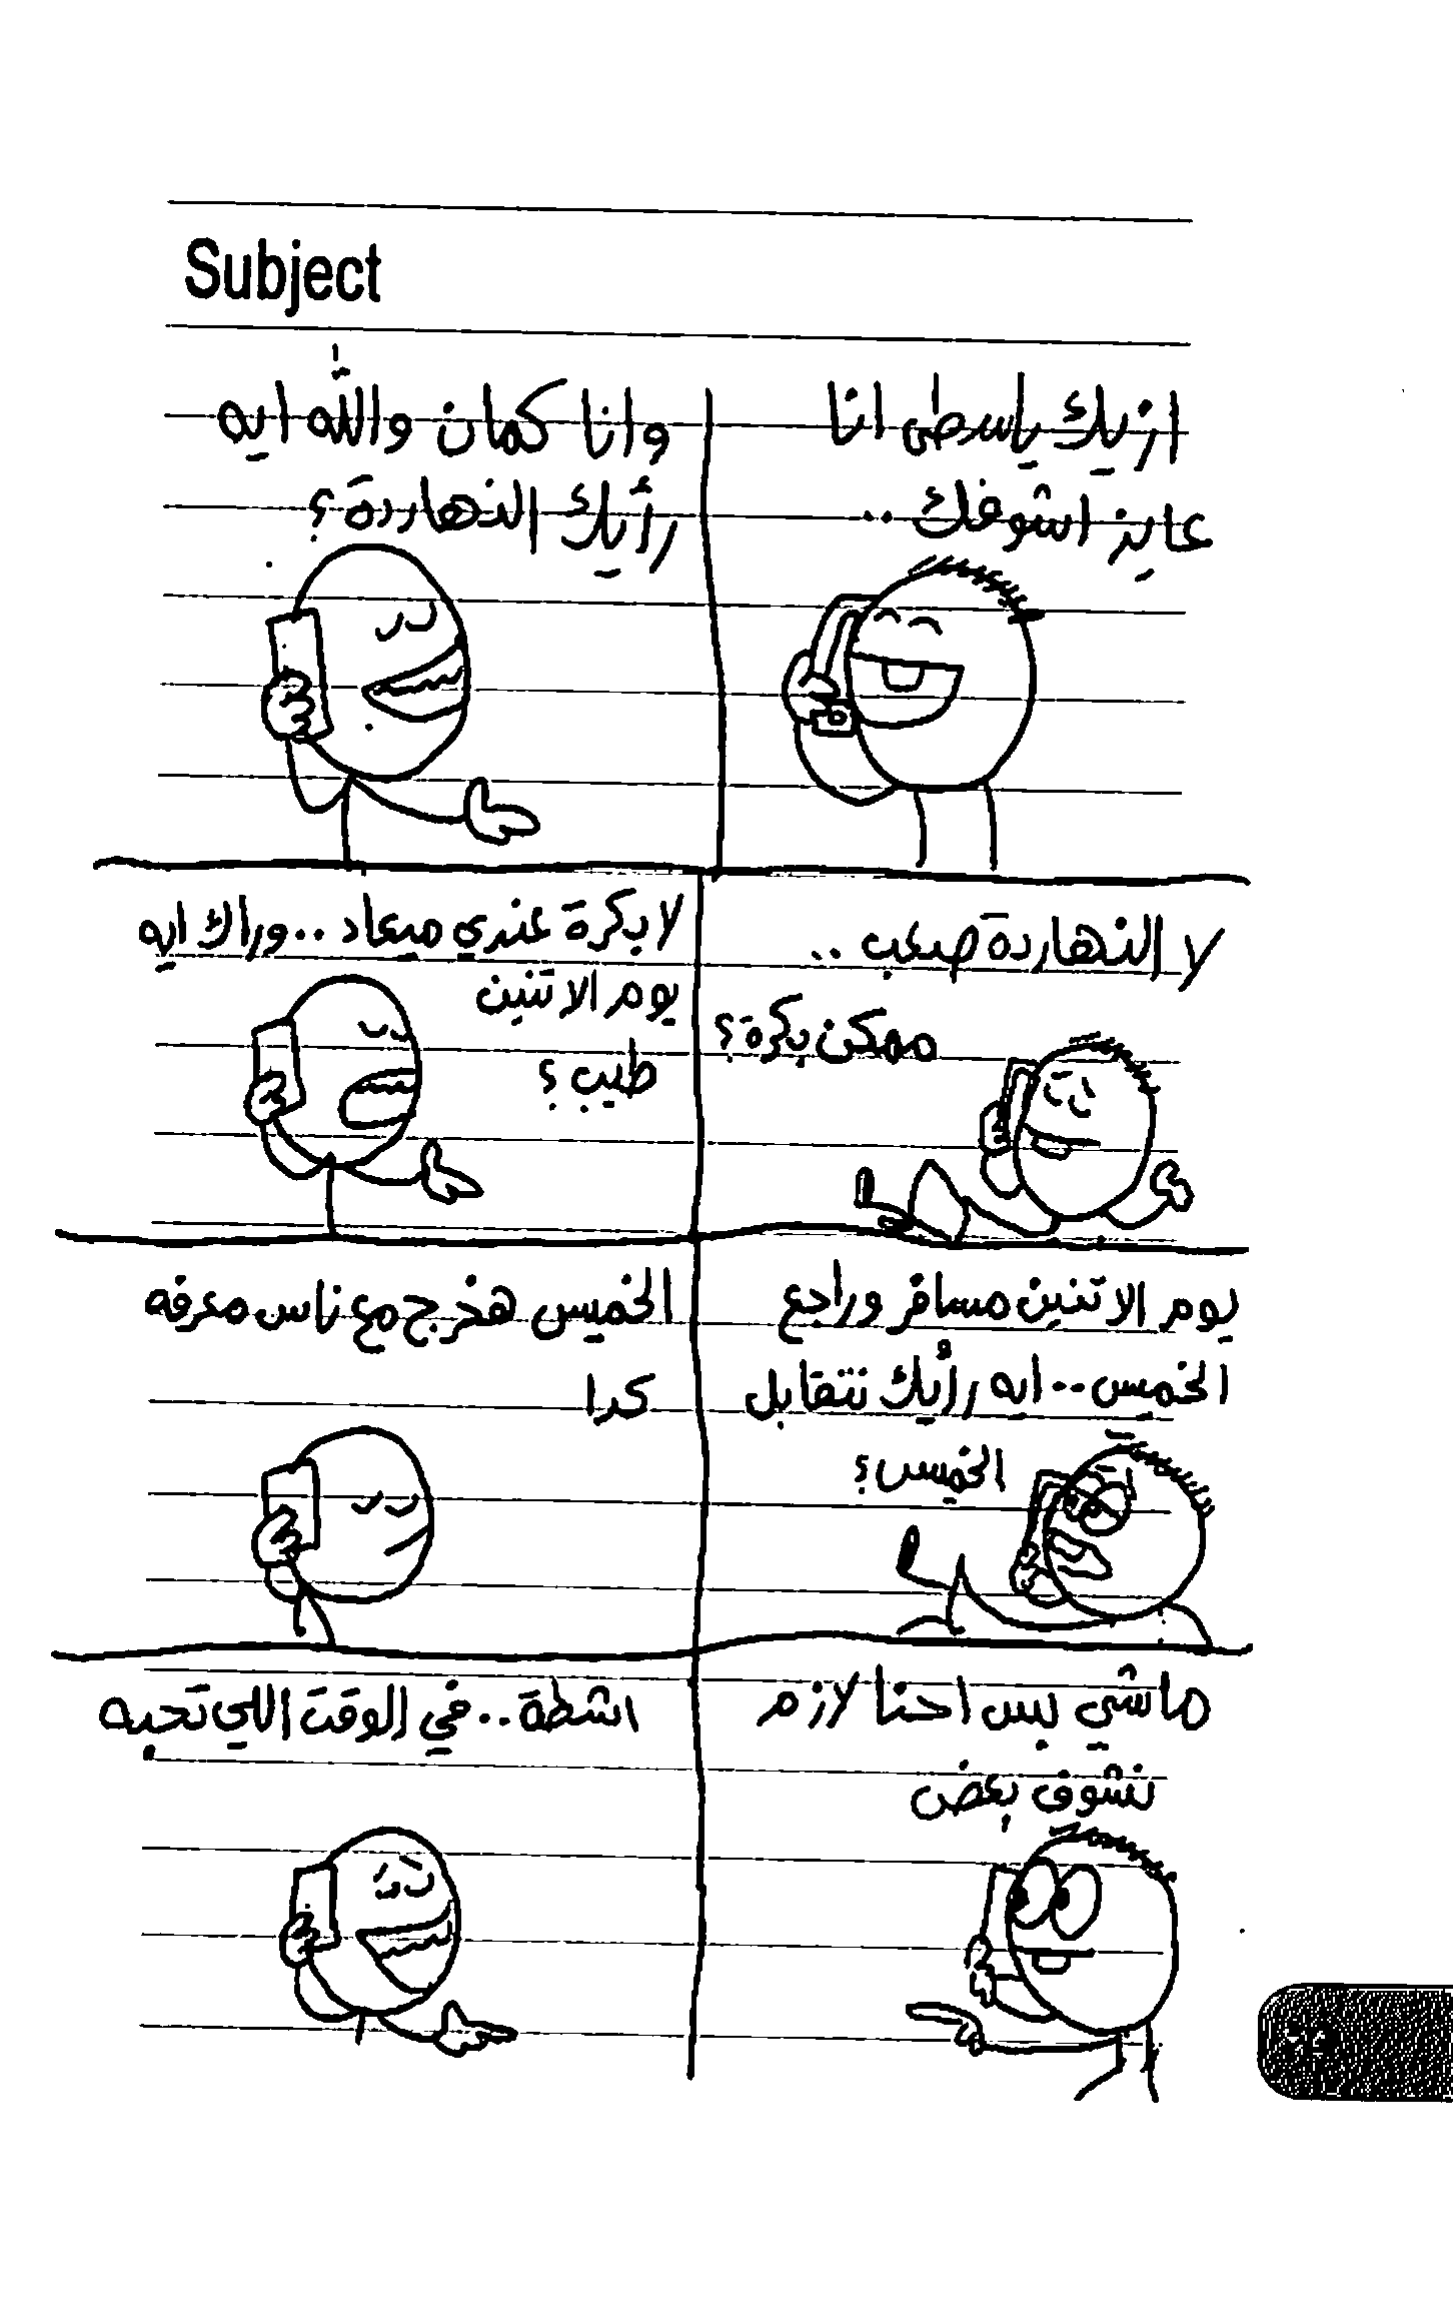 Subject
ازيك ياسطى انا
عايز اشوفك ..
وانا كمان والله ايه
رأيك النهاردة ؟
لا النهاردة صعب ..
ممكن بكرة ؟
لا بكرة عندي ميعاد .. وراك ايه
يوم الاتنين
طيب ؟
يوم الاتنين مسافر وراجع
الخميس .. ايه رأيك نتقابل
الخميس ؟
الخميس هخرج مع ناس معرفه
كدا
ماشي بس احنا لازم
نشوف بعض
اشطة .. في الوقت اللي تحبه